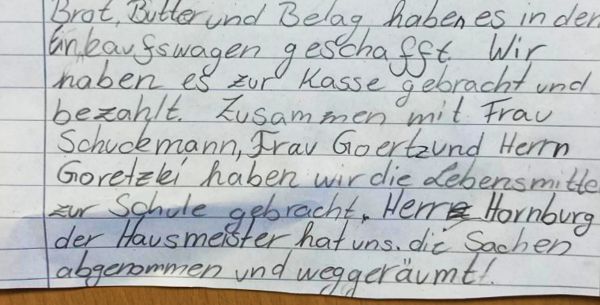 Brot, Butter und Belag haben es in den
Einkaufswagen geschafft. Wir
haben es zur Kasse gebracht und
bezahlt. Zusammen mit Frau
Schuckmann, Frau Goertz und Herrn
Goretzki haben wir die Lebensmitte
zur Schule gebracht. Herr Hornburg
der Hausmeister hat uns die Sachen
abgenommen und weggeräumt!